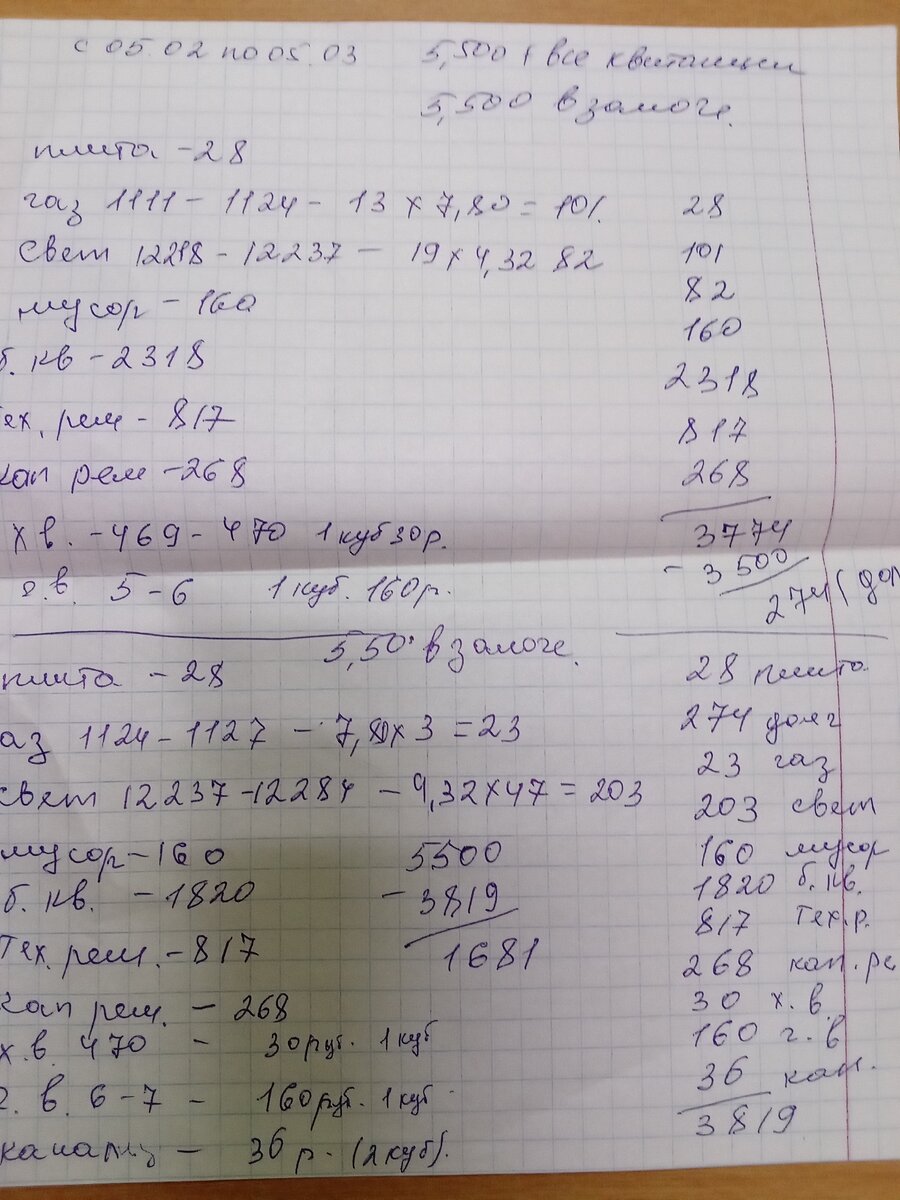 с 05.02 по 05.03 5,500 + все квитанции
5,500 в залоге.
плита - 28
газ 1111 - 1124 - 13 × 7,80 = 101. 28
свет 12218 - 12237 - 19 × 4,32 82 101
82
мусор - 160
160
б. кв - 2318
2318
тех. рем - 817
817
кап рем - 268
268
х в. - 469 - 470 1 куб 30 р.
3774
- 3500
г.в. 5 - 6 1 куб. 160 р.
274 (дол
5,50 в залоге.
плита - 28 28 плита
274 долг
газ 1124 - 1127 - 7,80 × 3 = 23
23 газ
свет 12237 - 12284 - 4,32 × 47 = 203 203 свет
мусор - 160 5500 160 мусор
б. кв. - 1820 - 3819 1820 б. кв.
817 тех.р.
тех. рем. - 817 1681
268 кап. ре
кап рем. - 268
30 х. в.
х.в. 470 - 30 руб. 1 куб
160 г. в
г. в. 6 - 7 - 160 руб. 1 куб
36 кан.
3819
канализ - 36 р. (2 куб).